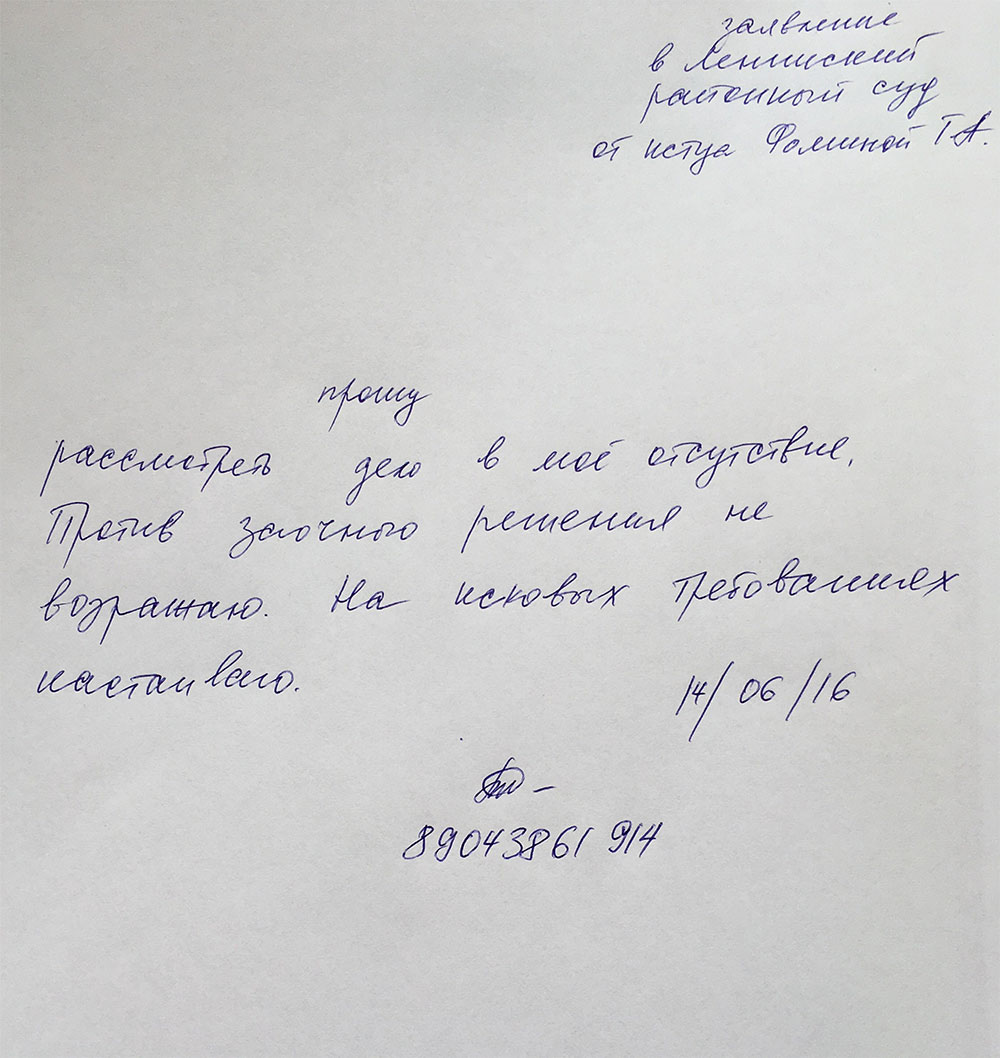 заявление
в Ленинский
районный суд
от истца Фоминой Т.А.
прошу
рассмотреть дело в моё отсутствие.
Против заочного решения не
возражаю. На исковых требованиях
настаиваю.
14/06/16
89043861 914